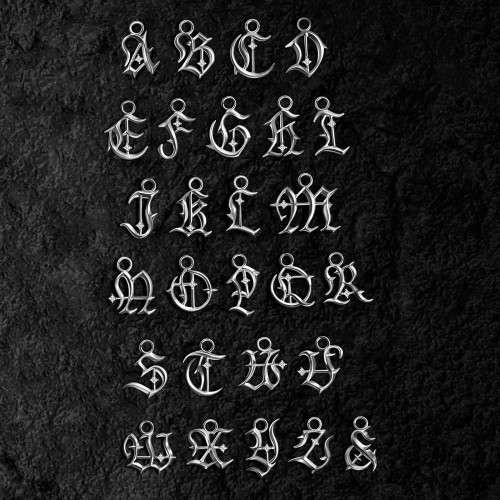 A B C D
E F G H I
J K L M
N O P Q R
S T U V
W X Y Z &